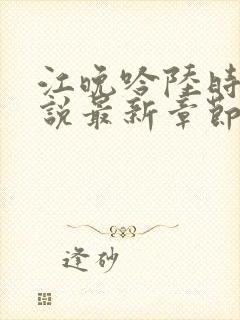 江晚吟陸時
說最新章節
逢砂